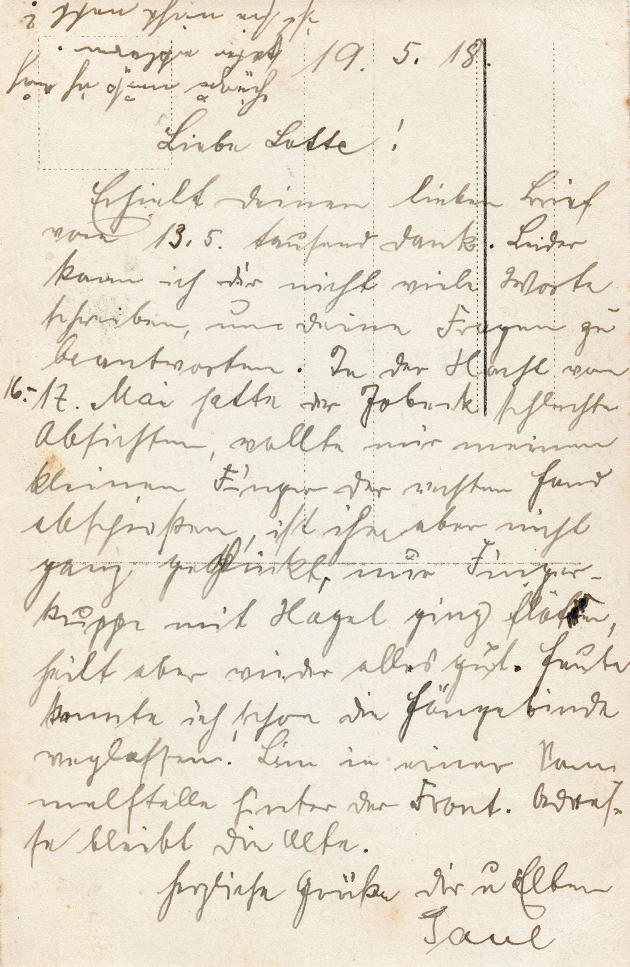 19. 5. 18.
Liebe Lotte!
Erhielt deinen lieben Brief
vom 13. 5. tausend Dank. Leider
kann ich dir nicht viele Worte
schreiben, um deine Fragen zu
beantworten. In der Nacht von
16.-17. Mai hatte der schlechte
Absichten, wollte mir meinen
kleinen Finger der rechten Hand
abschießen, ist ihm aber nicht
ganz geglückt, nur Finger-
kuppe mit Nagel ging flöten,
heilt aber wieder alles gut. Heute
konnte ich schon die Hängebinde
weglassen. Bin in einer Sam-
melstelle hinter der Front. Adres-
se bleibt die Alte.
Herzliche Grüße dir u Elben
Paul